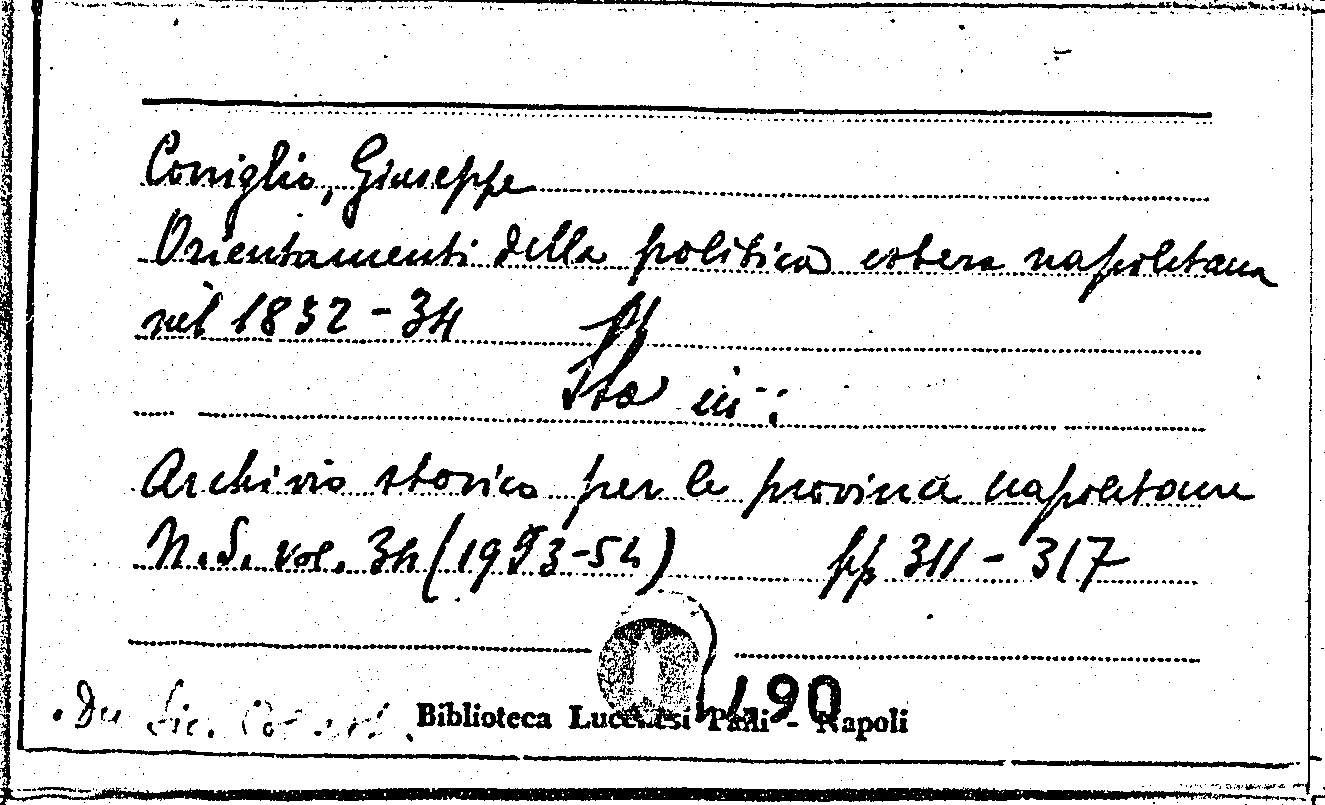 Coniglio, Giuseppe
Orientamenti della politica estera napoletana
nel 1832-34
Sta in:
Archivio storico per le province napoletane
N.S. vol. 34 (1953-54) pp 311-317
190
Biblioteca Lucchesi Palli - Napoli